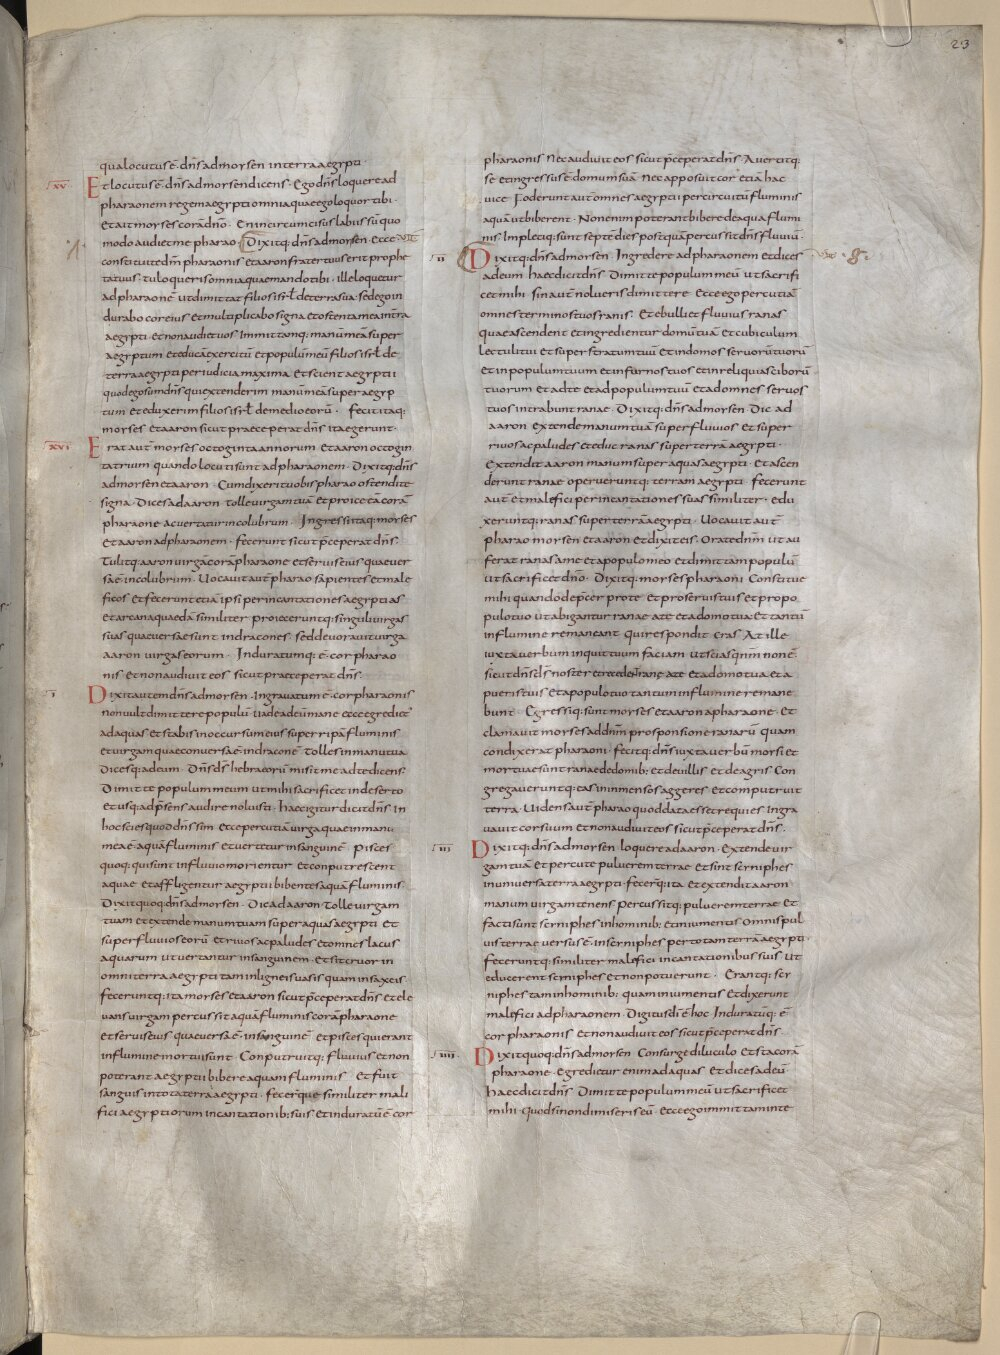 23
qua locutus ē· dn̄s ad moysen in terra aegypti·
XV Et locutus ē· dn̄s ad moysen dicens· Ego dn̄s loquere ad
pharaonem regem aegypti omnia quae ego loquor tibi·
Et ait moyses corā dn̄o· En incircumcisus labiis sū quo
modo audiet me pharao· Dixitq: dn̄s ad moysen· Ecce VII
constitui te dm̄ pharaonis et aaron frater tuus erit prophe
ta tuus· tu loqueris omnia quae mando tibi· ille loquetur
ad pharaonē ut dimittat filios isrł de terra sua· sed ego in
durabo cor eius et multiplicabo signa et ostenta mea in tr̄a
aegypti· et non audiet uos· Inmittamq: manū meā super
aegyptum et educā exercitū et populū meū filios isrł de
terra aegypti per iudicia maxima et scient aegyptii
quod ego sum dn̄s qui extenderim manū meā super aegyp
tum et eduxerim filios isrł de medio eorū· fecit itaq:
moyses et aaron sicut praeceperat dn̄s ita egerunt·
XVI Erat aut̄ moyses octoginta annorum et aaron octogin
ta trium quando locuti sunt ad pharaonem· Dixitq: dn̄s
ad moysen et aaron· Cum dixerit uobis pharao ostendite
signa· Dices ad aaron· tolle uirgam tuā et proice eā corā
pharaone ac uertatur in colubrum· Ingressi itaq: moyses
et aaron ad pharaonem· fecerunt sicut p̄ceperat dn̄s·
Tulitq: aaron uirgā corā pharaone et seruis eius quae uer
sa ē in colubrum· Uocauit aut̄ pharao sapientes et male
ficos et fecerunt etiā ipsi per incantationes aegyptias
et arcana quaedā similiter proieceruntq: singuli uirgas
suas quae uersae sunt in dracones· sed deuorauit uirga
aaron uirgas eorum· Induratumq: ē· cor pharao
nis et non audiuit eos sicut praeceperat dn̄s·
I Dixit autem dn̄s ad moysen· Ingrauatum ē· cor pharaonis
non uult dimittere populū uade ad eū mane ecce egredietˀ
ad aquas et stabis in occursum eius super ripā fluminis
et uirgam quae conuersa ē· in draconē tolles in manu tua
Dicesq: ad eum· Dn̄s ds̄ hebraeorū misit me ad te dicens·
Dimitte populum meum ut mihi sacrificet in deserto
et usq: ad p̄sens audire noluisti· haec igitur dicit dn̄s In
hoc scies quod dn̄s sim et ecce percutiā uirga quae in manu
mea ē aquā fluminis et uertetur in sanguinē· Pisces
quoq: qui sunt in fluuio morientur et computrescent
aquae et affligentur aegyptii bibentes aquā fluminis·
Dixit quoq: dn̄s ad moysen· Dic ad aaron tolle uirgam
tuam et extende manum tuam super aquas aegypti et
super fluuios eorū et riuos ac paludes et omnes lacus
aquarum ut uertantur in sanguinem et sit cruor in
omni terra aegypti tam in ligneis uasis quam in saxeis·
feceruntq: ita moyses et aaron sicut p̄ceperat dn̄s et ele
uans uirgam percussit aquā fluminis corā pharaone
et seruis eius quae uersa ē· in sanguinē· et pisces qui erant
in flumine mortui sunt· Conputruitq: fluuius et non
poterant aegyptii bibere aquam fluminis· Et fuit
sanguis in tota terra aegypti· feceruntque similiter mali
fici aegyptiorum incantationib: suis et induratū ē cor
pharaonis nec audiuit eos sicut p̄ceperat dn̄s· Auertitq:
se et ingressus ē domum suā nec apposuit cor etiā hac
uice· foderunt aut̄ omnes aegyptii per circuitū fluminis
aquā ut biberent· Non enim poterant bibere de aqua flumi
nis· Impletiq: sunt septē dies postquā percussit dn̄s fluuiū·
II Dixitq: dn̄s ad moysen· Ingredere ad pharaonem et dices
ad eum haec dicit dn̄s· Dimitte populum meū ut sacrifi
cet mihi· sin aut̄ nolueris dimittere· Ecce ego percutiā
omnes terminos tuos ranis· Et ebulliet fluuius ranas
quae ascendent et ingredientur domū tuā et cubiculum
lectuli tui et super stratum tuū et in domos seruorū tuorū
et in populum tuum et in furnos tuos et in reliquias ciborū
tuorum et ad te et ad populum tuū et ad omnes seruos
tuos intrabunt ranae· Dixitq: dn̄s ad moysen· Dic ad
aaron extende manum tuā super fluuios et super
riuos ac paludes et educ ranas super terrā aegypti·
Extendit aaron manum super aquas aegypti· et ascen
derunt ranae operueruntq: terram aegypti· fecerunt
aut̄ et malefici per incantationes suas similiter· edu
xeruntq: ranas super terrā aegypti· Uocauit aut̄
pharao moysen et aaron et dixit eis· Orate dn̄m ut au
ferat ranas a me et a populo meo et dimittam populū
ut sacrificet dn̄o· Dixitq: moyses pharaoni Constitue
mihi quando depcer pro te et pro seruis tuis et propo
pulo tuo ut abigantur ranae a te et a domo tua et tantū
in flumine remaneant qui respondit cras At ille
iuxta uerbum inquit tuum faciam ut scias qn̄m non ē·
sicut dn̄s ds̄ noster et recedent ranae a te et a domo tua et a
pueris tuis et a populo tuo tantum in flumine remane
bunt· Egressiq: sunt moyses et aaron a pharaone· Et
clamauit moyses ad dn̄m pro sponsione ranarū quam
condixerat pharaoni· fecitq: dn̄s iuxta uerbū moysi et
mortuae sunt ranae de domib: et de uillis et de agris Con
gregaueruntq: eas in inmensos aggeres et computruit
terra· Uidens aut̄ pharao quod data esset requies Ingra
uauit cor suum et non audiuit eos sicut p̄ceperat dn̄s·
III Dixitq: dn̄s ad moysen· loquere ad aaron· Extende uir
gam tuā et percute puluerem terrae et sint scyniphes
in uniuersa terra aegypti· fecer̄q: ita· et extendit aaron
manum uirgam tenens percussitq: puluerem terrae et
facti sunt scyniphes in hominib: et in iumentis· Omnis pul
uis terrae uersus ē· in scyniphes per totam terrā aegypti·
feceruntq: similiter malefici incantationibus suis ut
educerent scyniphes et non potuerunt· Erantq: scy
niphes tam in hominib: quam in iumentis et dixerunt
malefici ad pharaonem· Digitus di̅ ē hoc· Induratūq: ē
cor pharaonis et non audiuit eos sicut p̄ceperat dn̄s·
IIII Dixit quoq: dn̄s ad moysen· Consurge diluculo et sta corā
pharaone· Egredietur enim ad aquas et dices ad eū·
Haec dicit dn̄s· Dimitte populum meū ut sacrificet
mihi· quod si non dimiseris eū· Ecce ego inmittam in te